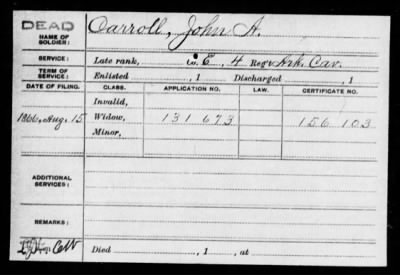 DEAD
NAME OF SOLDIER: Carroll, John A.
SERVICE: Late rank, Co. E, 4 Reg't Ark. Cav.
TERM OF SERVICE: Enlisted , 1 Discharged , 1
DATE OF FILING. CLASS. APPLICATION NO. LAW. CERTIFICATE NO.
Invalid,
1866, Aug. 15 Widow, 131 673 156 103
Minor,
ADDITIONAL SERVICES:
REMARKS:
Died , 1 , at